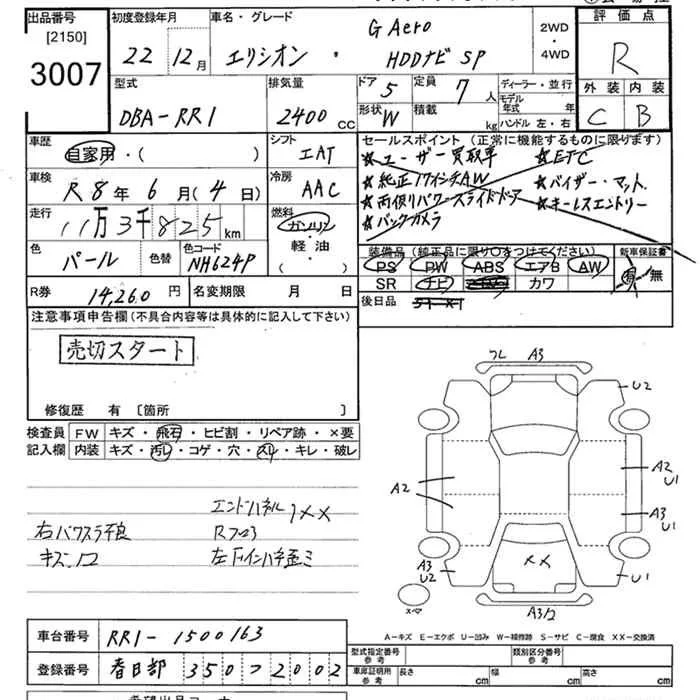 出品番号
[2150]
3007
初度登録年月
22 12月
車名・グレード
エリシオン ・ G Aero
HDDナビ SP
2WD
・
4WD
評価点
R
外装 内装
C B
型式
DBA-RR1
排気量
2400 CC
ドア 5
定員 7 人
形状 W
積載 kg
ディーラー・並行
モデル年式 年
ハンドル 左・右
車歴
自家用・( )
シフト
IAT
車検
R 8年 6月(4日)
冷房
AAC
走行
11万3千825km
燃料
ガソリン
軽油
・( )
色
パール
色替
色コード
NH624P
セールスポイント (正常に機能するものに限ります)
★ユーザー買取車 ★ETC
★純正17インチAW ★バイザー・マット
★両側パワースライドドア ★キーレスエントリー
★バックカメラ
装備品 (純正品に限り○をつけてください)
新車保証書
PS PW ABS エアB AW
SR ナビ カワ
有・無
後日品
R券 14,260円
名変期限 月 日
注意事項申告欄(不具合内容等は具体的に記入して下さい)
売切スタート
修復歴 有 [箇所 ]
検査員記入欄
FW キズ・飛石・ヒビ割・リペア跡・×要
内装 キズ・汚レ・コゲ・穴・スレ・キレ・破レ
エンドパネル XX
右バクスラ不良 Rフロア
左下インパネキズミ
フレ A3
U2
A2
U1
A2
A3
U1
A3
U2
XX
U1
スペア
A3/2
A-キズ E-エクボ U-凹み W-補修跡 S-サビ C-腐食 XX-交換済
車台番号 RR1-1500163
登録番号 春日部 350 つ 2002
型式指定番号 参考
類別区分番号 参考
車庫証明用 参考 長さ cm 幅 cm 高さ cm